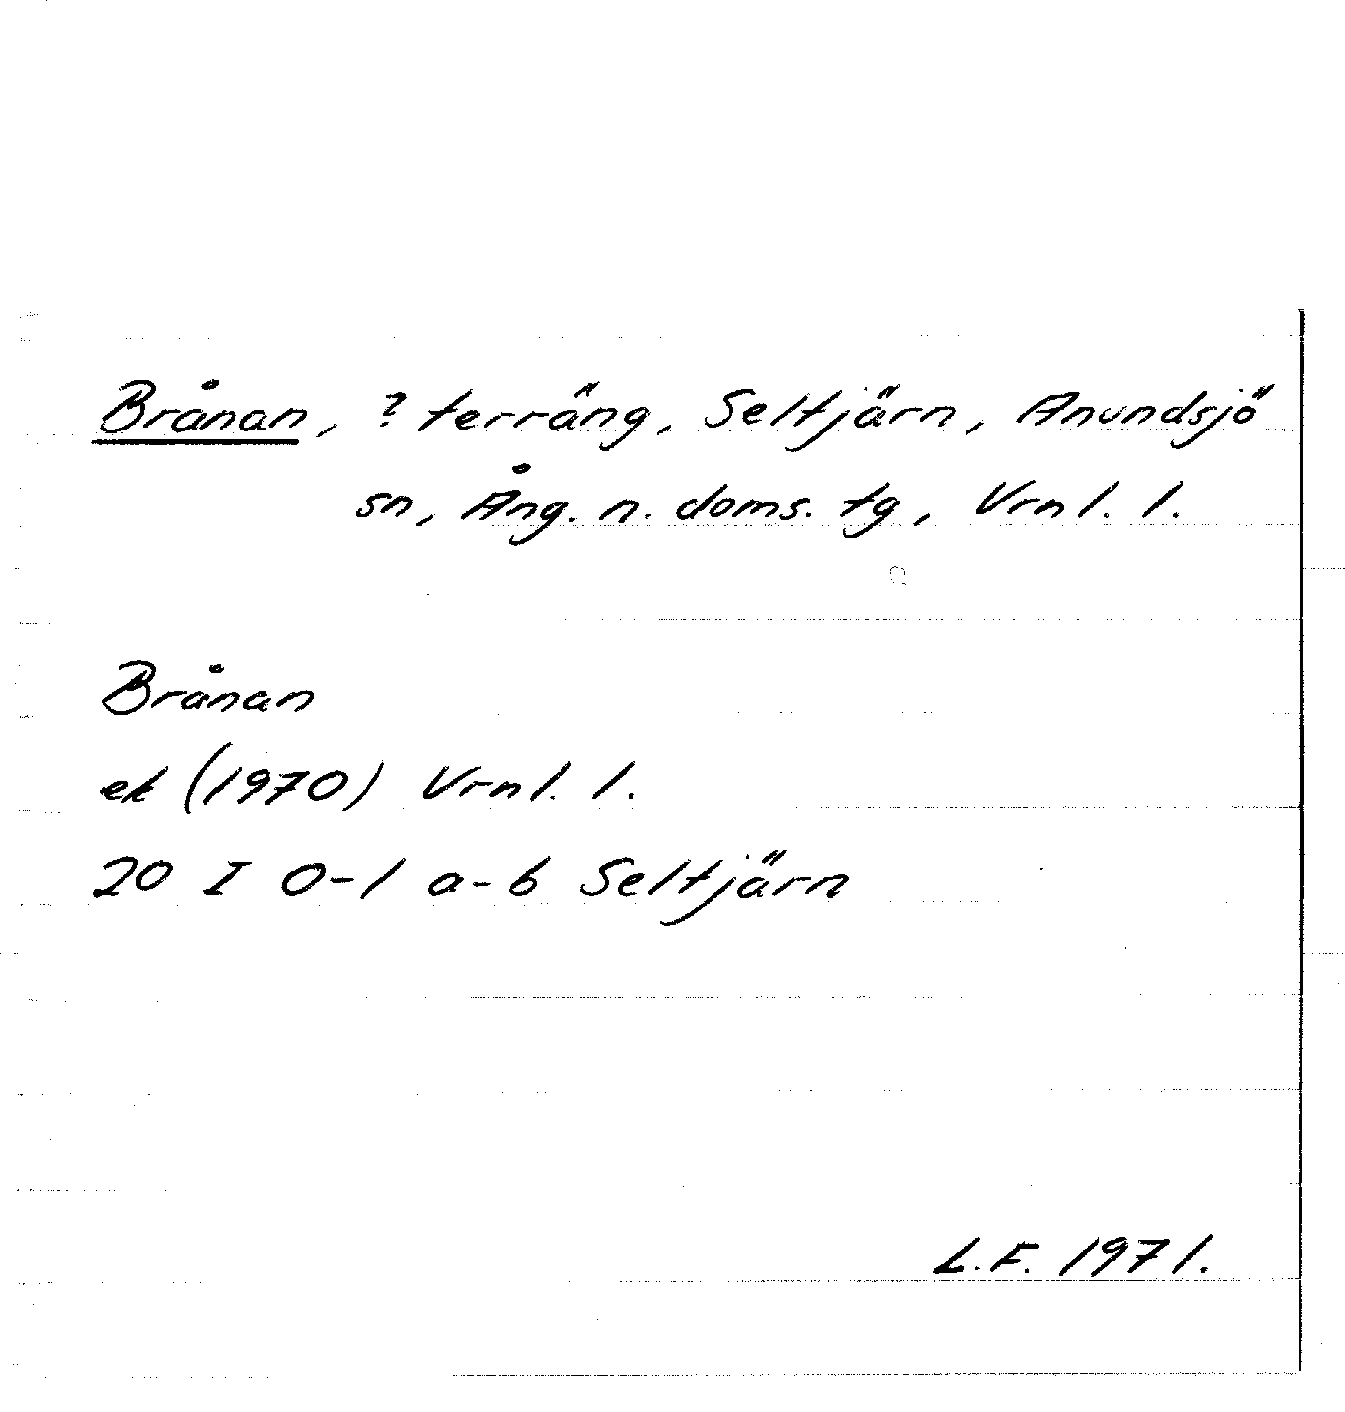 Brånan, ? terräng, Seltjärn, Anundsjö
sn, Ång. n. doms. tg, Vrnl. l.
Brånan
ek (1970) Vrnl. l.
20 I 0-1 a-b Seltjärn
L.F. 1971.